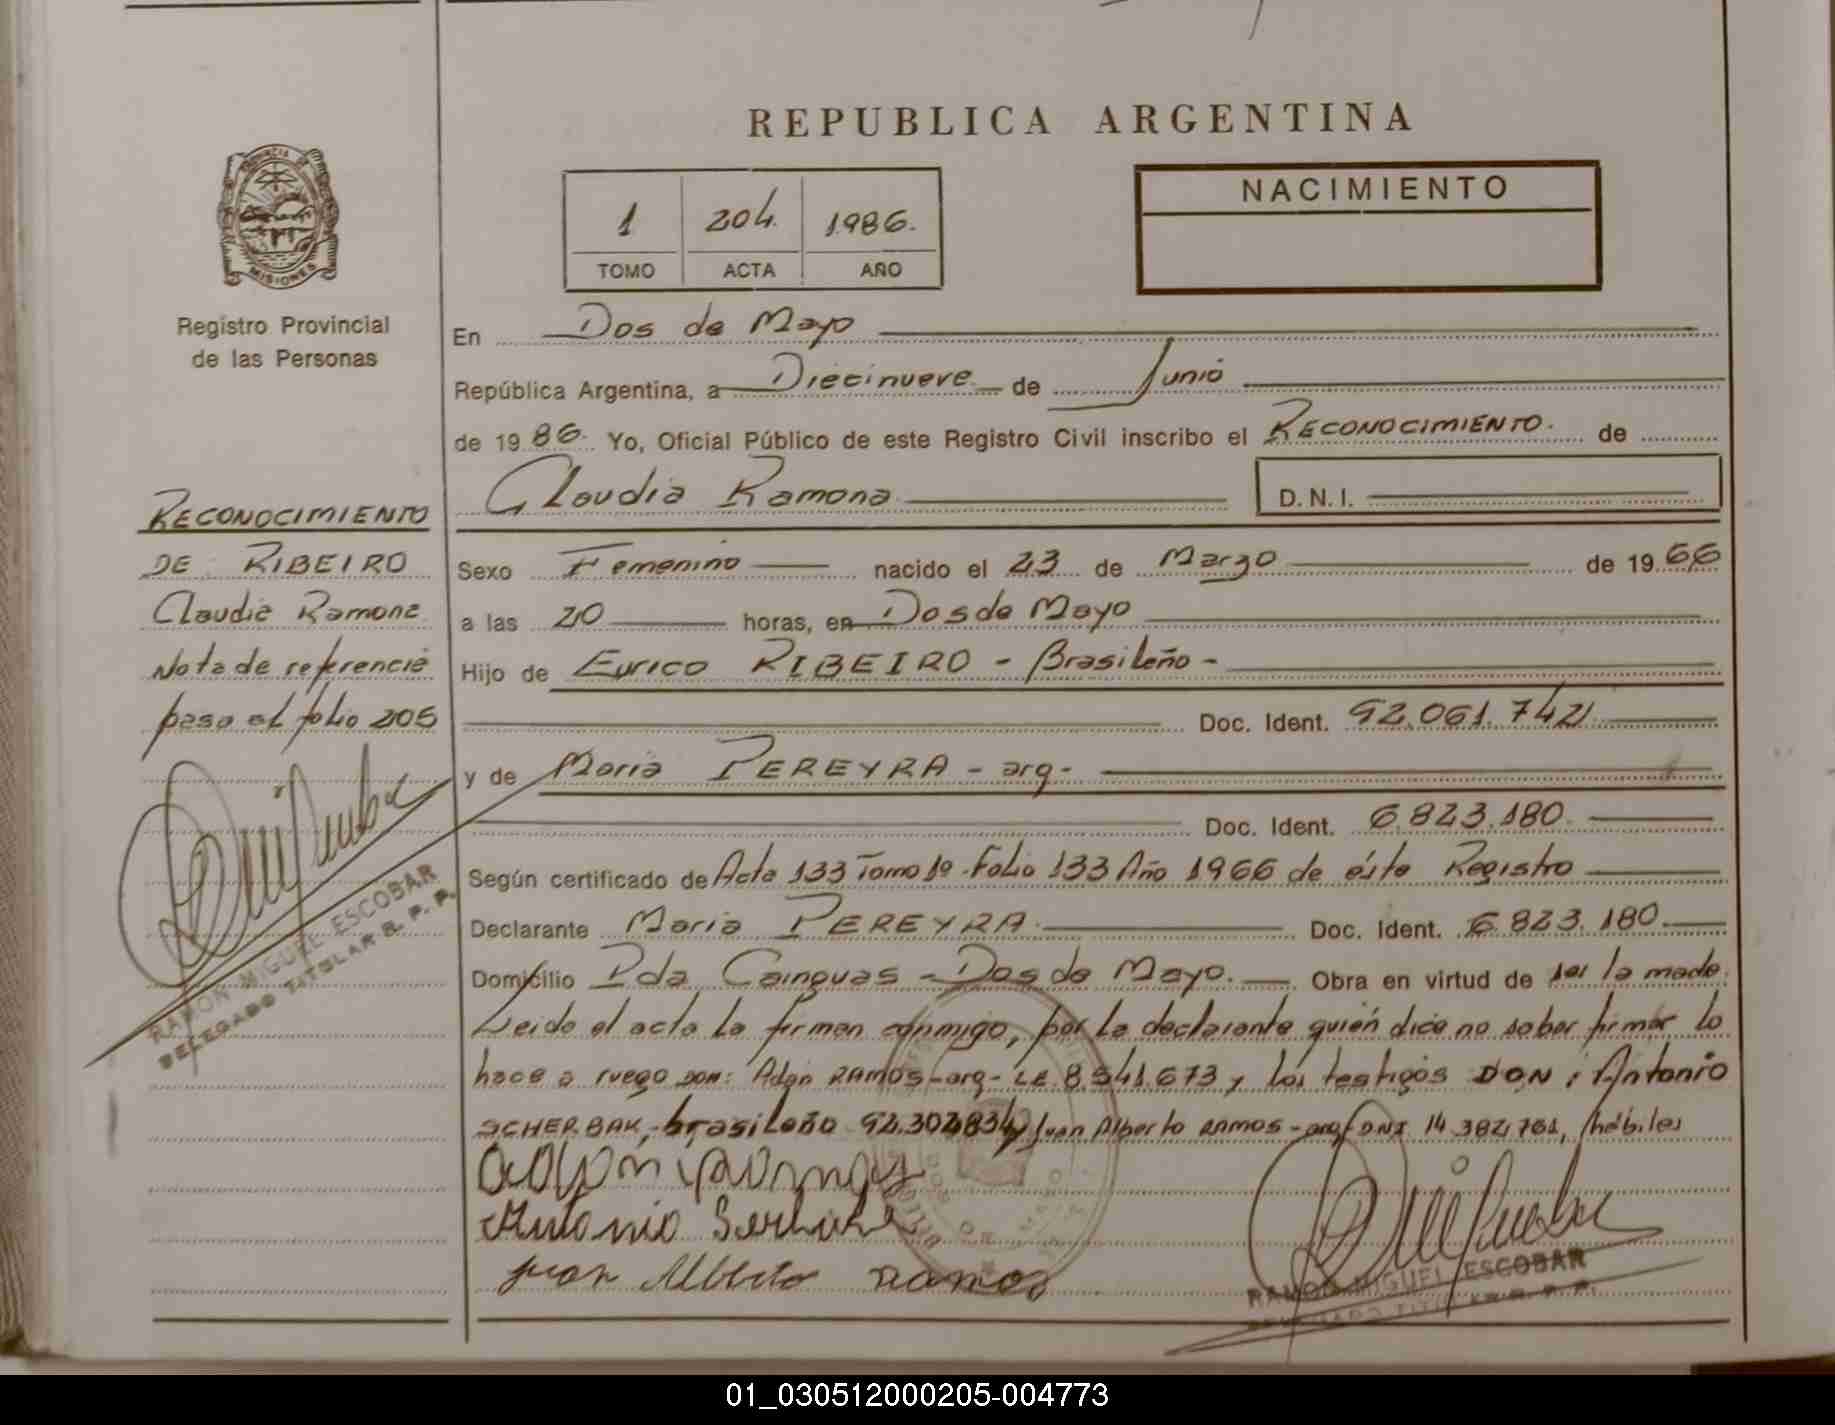 REPUBLICA ARGENTINA
PROVINCIA DE
MISIONES
Registro Provincial
de las Personas
1 204. 1986.
TOMO ACTA AÑO
NACIMIENTO
En Dos de Mayo
República Argentina, a Diecinueve de Junio
de 19 86. Yo, Oficial Público de este Registro Civil inscribo el RECONOCIMIENTO. de
Claudia Ramona D.N.I.
Sexo Femenino nacido el 23 de Marzo de 19 66
a las 20 horas, en Dos de Mayo
Hijo de Eurico RIBEIRO - Brasileño -
Doc. Ident. 92.061.742
y de Maria PEREYRA - arg -
Doc. Ident. 6.823.180.
Según certificado de Acta 133 Tomo 1º Folio 133 Año 1966 de ésto Registro
Declarante Maria PEREYRA. Doc. Ident. 6.823.180.
Domicilio Pda Cainguas - Dos de Mayo. Obra en virtud de ser la madre.
Leida el acta la firman conmigo, por la declarante quién dice no saber firmar lo
hace a ruego DON: Adán RAMOS - arg - LE 8.541.673 y los testigos DON: Antonio
SCHERBAK, - brasileño 92.302834 y Juan Alberto RAMOS - arg DNI 14.382,761, hábiles
Antonio
Juan Alberto Ramos
RAMON MIGUEL ESCOBAR
DELEGADO TITULAR R. P. P.
RECONOCIMIENTO
DE RIBEIRO
Claudia Ramona
Nota de referencia
pasa al folio 205
RAMON MIGUEL ESCOBAR
DELEGADO TITULAR R. P. P.
01_030512000205-004773